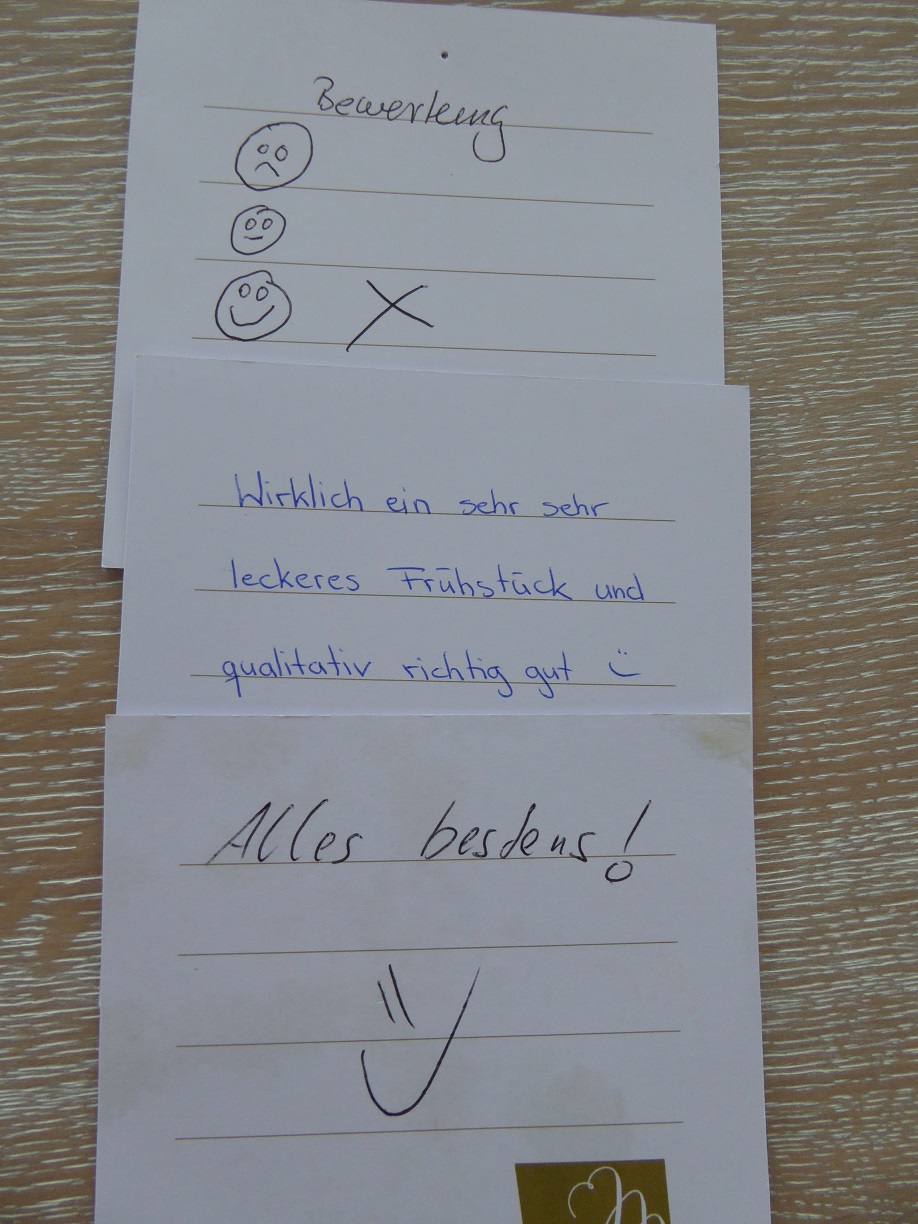 Bewertung
Wirklich ein sehr sehr
leckeres Frühstück und
qualitativ richtig gut
Alles bestens!